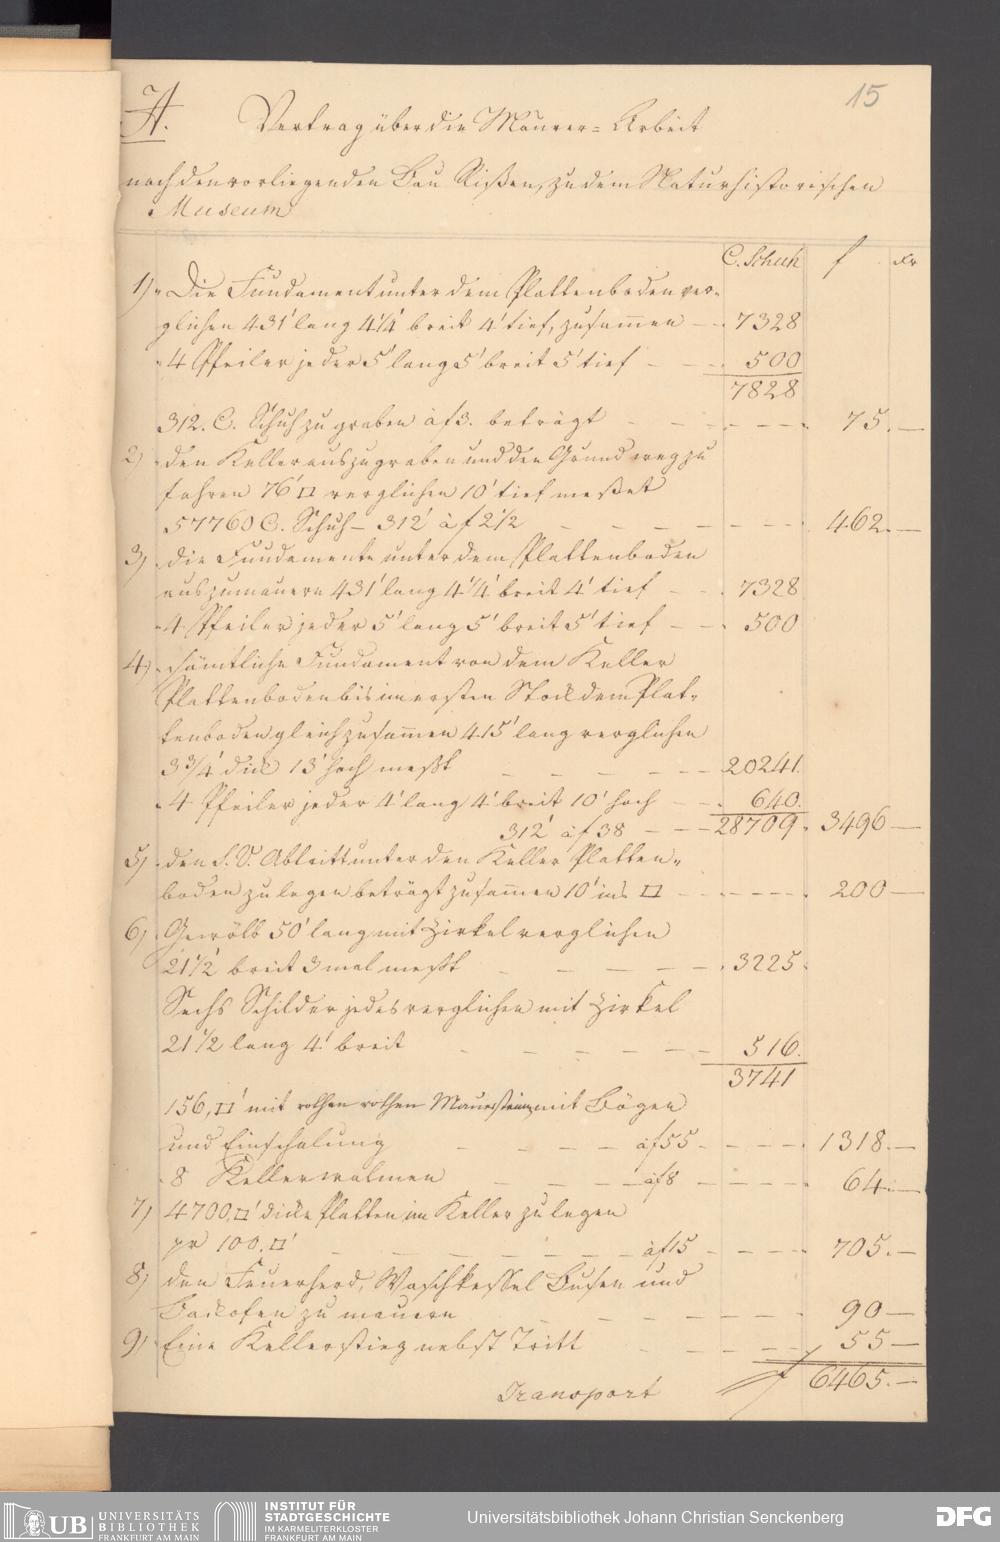 15
A.
Vertrag über die Maurer=Arbeit
nach den vorliegenden Bau Rißen, zu dem Naturhistorischen
Museum
C. Schuh f xr
1) Die Fundament unter dem Plattenboden ver-
glichen 431' lang 4 1/4' breit 4' tief, zusamen — 7328
4 Pfeiler jeder 5' lang 5' breit 5' tief — — 500
7828
312. C. Schuh zu graben à f 3. beträgt — — — — 75. —
2) den Keller auszugraben und den Grund weg zu
fahren 76' □ verglichen 10' tief meßet
57760 C. Schuh — 312' à f 2 1/2 — — — — 462. —
3) die Fundamente unter dem Plattenboden
auszumauern 431' lang 4 1/4' breit 4' tief — — 7328
4 Pfeiler jeder 5' lang 5' breit 5' tief — — 500
4) sämtliche Fundament von dem Keller
Plattenboden bis im ersten Stock dem Plat-
tenboden gleich zusamen 415' lang verglichen
3 3/4' dick 13' hoch meßt — — — — — 20241.
4 Pfeiler jeder 4' lang 4' breit 10' hoch — — 640.
312' à f 38 — — 28709. 3496 —
5) den S. V. Abtritt unter den Keller Platten-
boden zu legen beträgt zusamen 10' ins □ — — — — 200 —
6) Gewölb 50' lang mit Zirkel verglichen
21 1/2' breit 3 mal meßt — — — — — 3225.
Sechs Schilder jedes verglichen mit Zirkel
21 1/2 lang 4' breit — — — — — 516.
3741
156, □' mit rothen rothen Mauersteinen mit Bögen
und Einschalung — — — — à f 55 — — — — 1318. —
8 Kellerwalmen — — — — à f 8 — — — — 64. —
7) 4700, □' dicke Platten im Keller zu legen
pr 100. □' — — — — — à f 15 — — — — 705. —
8) den Feuerherd, Waschkessel Busen und
Backofen zu mauern — — — — — — — 90 —
9) Eine Kellerstieg nebst Tritt — — — — 55 —
Transport f 6465. —
UB UNIVERSITÄTS
BIBLIOTHEK
FRANKFURT AM MAIN
INSTITUT FÜR
STADTGESCHICHTE
IM KARMELITERKLOSTER
FRANKFURT AM MAIN
Universitätsbibliothek Johann Christian Senckenberg
DFG